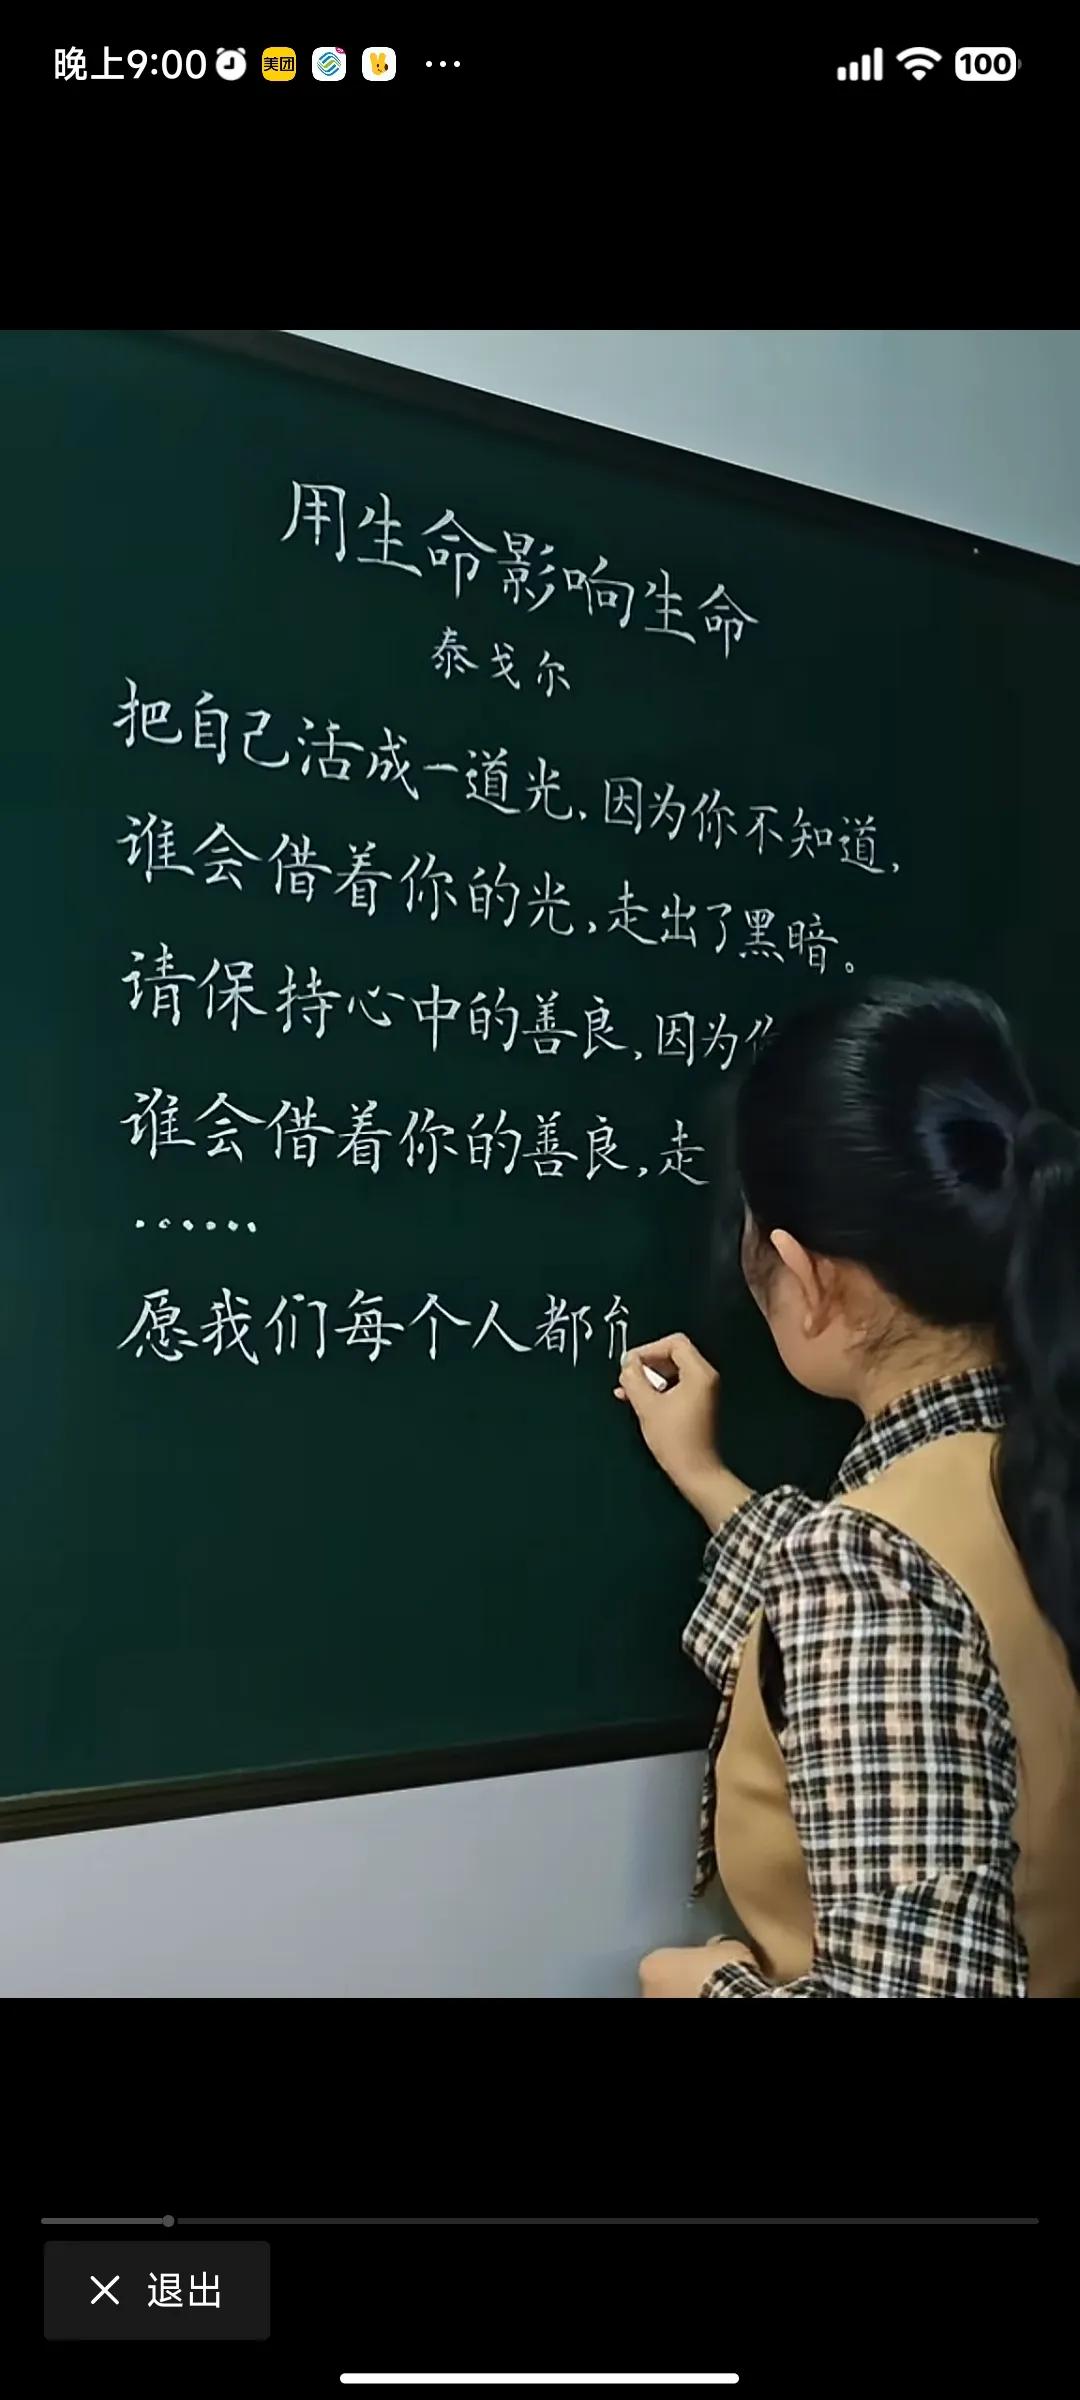 晚上9:00 美团 100
用生命影响生命
泰戈尔
把自己活成一道光,因为你不知道,
谁会借着你的光,走出了黑暗。
请保持心中的善良,因为
谁会借着你的善良,走
......
愿我们每个人都
退出